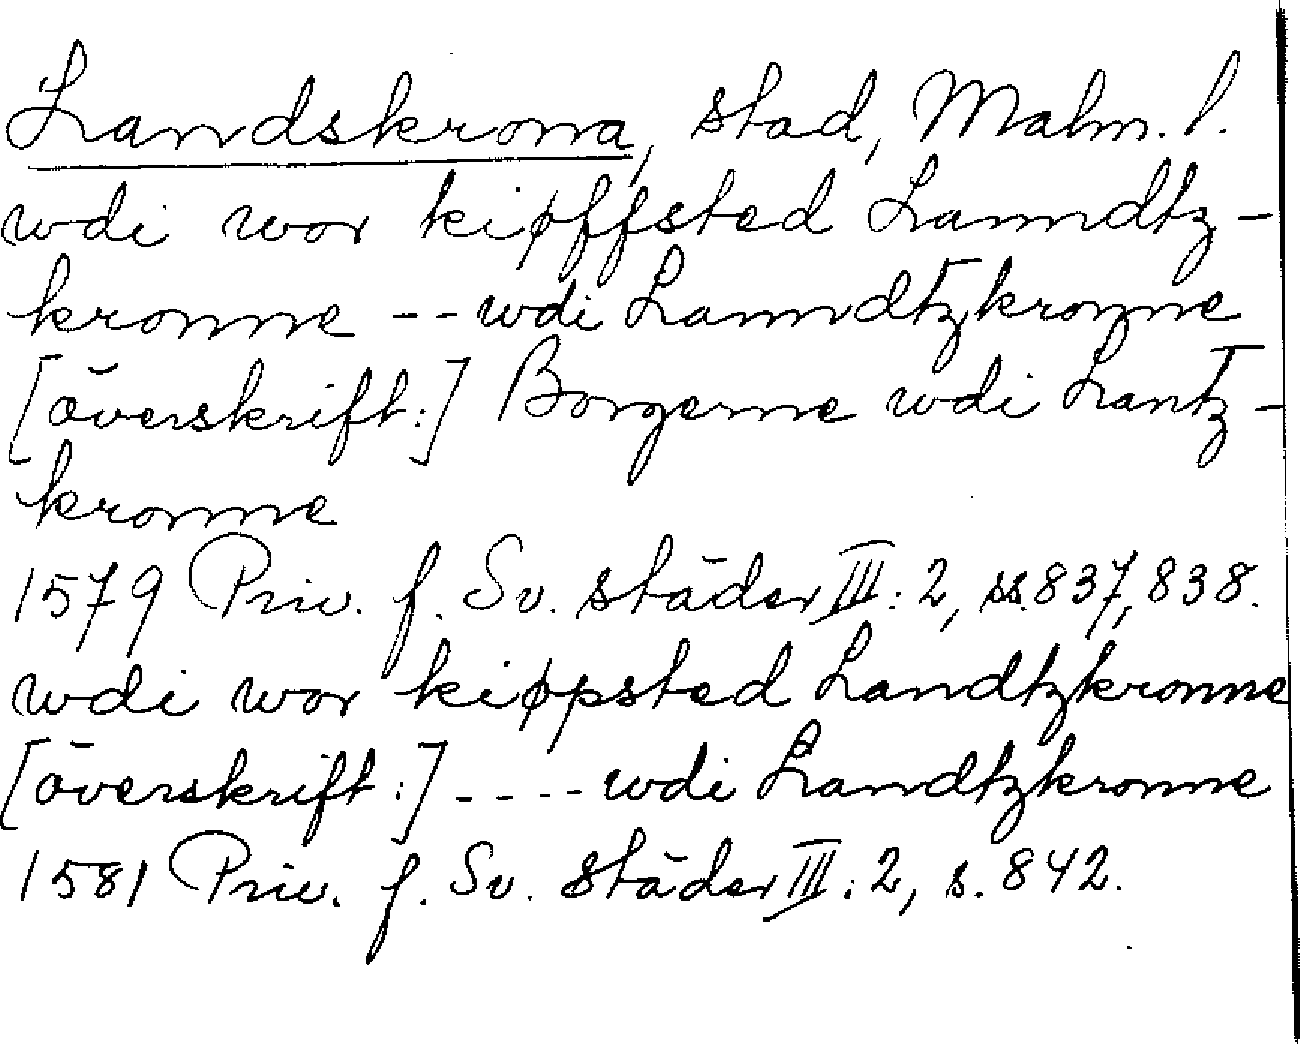 Landskrona, stad, Malm. l.
wdi wor kiøffsted Lanndtz-
kronne -- wdi Lanndtzkronne
[överskrift:] Borgerne wdi Lantz-
kronne
1579 Priv. f. Sv. städer III: 2, ss. 837, 838.
wdi wor kiøpsted Landtzkronne
[överskrift:] ---- wdi Landtzkronne
1581 Priv. f. Sv. städer III: 2, s. 842.